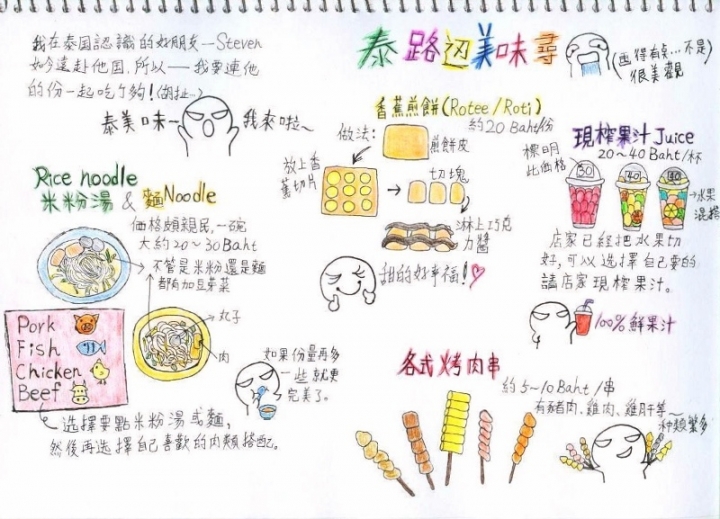 我在泰国認識的好朋友—Steven
如今遠赴他国,所以——我要連他
的份一起吃个夠!(胡扯…)
泰美味—
我來啦~
泰路边美味尋
(画得有点…不是
很美觀
Rice noodle
米粉湯 & 麵Noodle
價格頗親民,一碗
大約20~30Baht
不管是米粉還是麵
都有加豆菜
丸子
肉
Pork
Fish
Chicken
Beef
如果份量再多
一些就更
完美了。
選擇要點米粉湯或麵,
然後再選擇自己喜歡的肉類搭配。
香蕉煎餅(Rotee/Roti)
約20 Baht/份
做法:
煎餅皮
放上香
蕉切片
切塊
淋上巧克
力醬
甜的好幸福!
現榨果汁 Juice
20~40 Baht/杯
標明
此価格
30
40
40
水果
混搭
店家已經把水果切
好,可以選擇自己要的
請店家現榨果汁。
100%鮮果汁
各式烤肉串
約5~10Baht/串
有豬肉、雞肉、雞肝等~
种類繁多